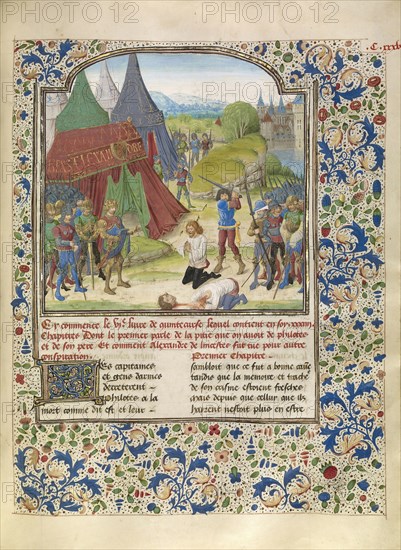 C. xxxb
Cy commence le Vije livre de quintecurse lequel contient en soy xxxiij
Chapitres Dont le premier parle de la pitie que on avoit de philotes
et de son pere Et comment Alexandre de fut tue pour autre
conspiration
Premier Chapitre
Les capitaines
et gens darmes
decreterent
philotes a la
mort comme dit est et leur
sambloit que ce fut a bonne cause
tandis que la memoire et trache
de son crisme estoient fresches
mais depuis que cellui que ilz
haioient nestoit plus en estre